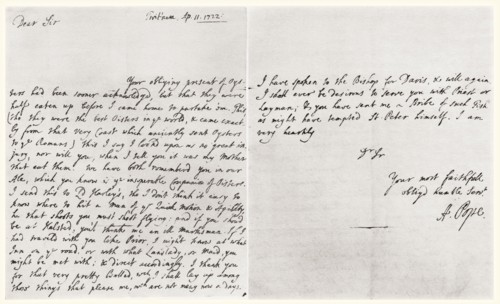 Dear Sir
Ap. 11. 1722.
Your obliging present of Oys-
ters had been sooner acknowledged, but that they were
half eaten up before I came home to partake 'em. This
(tho they were the best Oisters in yͤ world, & came exact-
ly from that very Coast which anciently sent Oysters
to yͤ Romans) This I say I lookd upon as no great in-
jury, nor will you, when I tell you it was my Mother
that eat them. We have both remembred you in our
Ale, which you know is yͤ inseparable Companion of Oisters.
I send this to Harley's, tho I dont think it easy to
know where to hit a Man of yͬ Quick Motion & Agility:
he that shoots you must shoot flying: and if you should
be at Halsted, you'l thank me an old Marksman. If I
had traveld with you like Prior, I might know at what
Inn on yͤ road, or with what Landlady, or Maid, you
might be met with: & direct accordingly. I thank you
for that very pretty Ballad, wͨͪ I shall lay up among
those things that please me, wͨͪ are not many now a days.
I have spoken to the Bishop for Davis, & will again
I shall ever be desirous to serve you with Priest or
Layman, & you have sent me a Bribe of such Fish
as might have tempted St Peter himself. I am
very heartily
Dͬ Sr
Your most faithfull
obligd humble Servͭ
A. Pope.